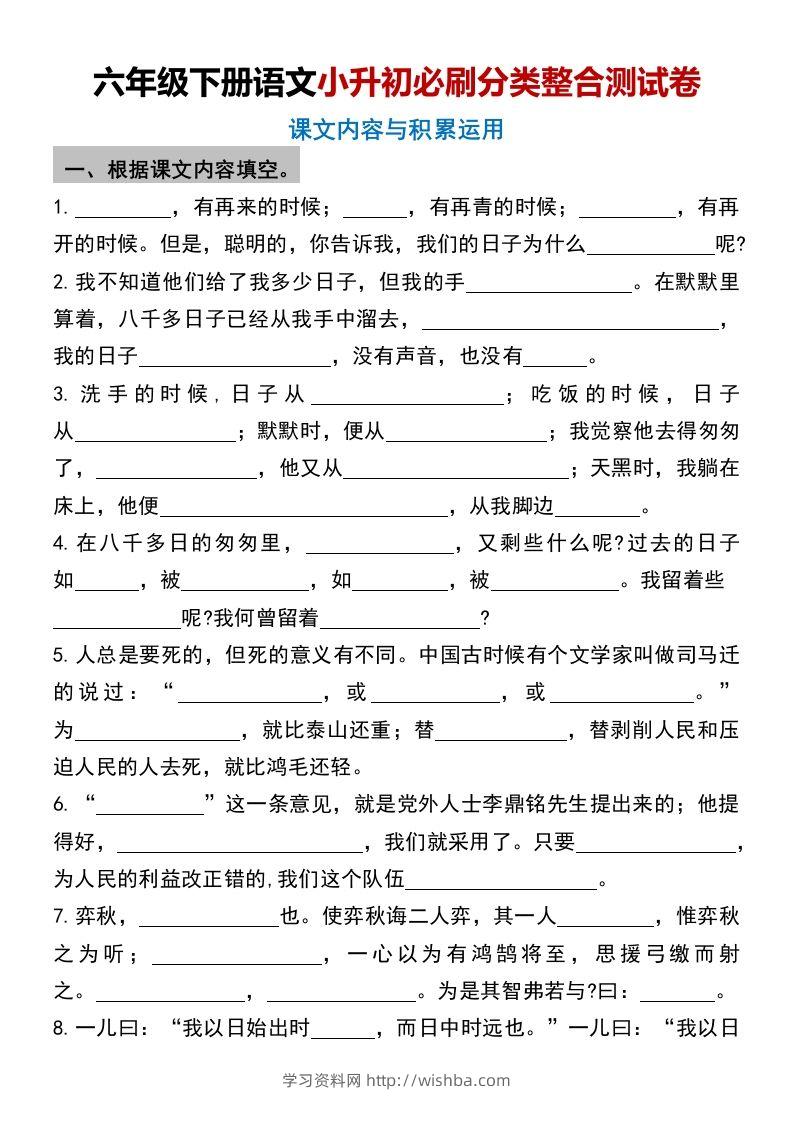 六年级下册语文小升初必刷分类整合测试卷
课文内容与积累运用
一、根据课文内容填空。
1. _________，有再来的时候；______，有再青的时候；_________，有再
开的时候。但是，聪明的，你告诉我，我们的日子为什么____________呢?
2. 我不知道他们给了我多少日子，但我的手_______________。在默默里
算着，八千多日子已经从我手中溜去，___________________________，
我的日子__________________，没有声音，也没有______。
3. 洗手的时候,日子从__________________；吃饭的时候，日子
从_______________；默默时，便从_______________；我觉察他去得匆匆
了，_______________，他又从_____________________；天黑时，我躺在
床上，他便___________________________，从我脚边________。
4. 在八千多日的匆匆里，______________，又剩些什么呢?过去的日子
如______，被____________，如_________，被____________。我留着些
____________呢?我何曾留着_______________?
5. 人总是要死的，但死的意义有不同。中国古时候有个文学家叫做司马迁
的说过：“_____________，或____________，或_____________。”
为_______________，就比泰山还重；替____________，替剥削人民和压
迫人民的人去死，就比鸿毛还轻。
6. “__________”这一条意见，就是党外人士李鼎铭先生提出来的；他提
得好，_______________________，我们就采用了。只要_______________，
为人民的利益改正错的,我们这个队伍__________________。
7. 弈秋，_____________也。使弈秋诲二人弈，其一人_________，惟弈秋
之为听；________________，一心以为有鸿鹄将至，思援弓缴而射
之。______________，______________。为是其智弗若与?曰：_______。
8. 一儿曰：“我以日始出时______，而日中时远也。”一儿曰：“我以日
学习资料网 http://wishba.com